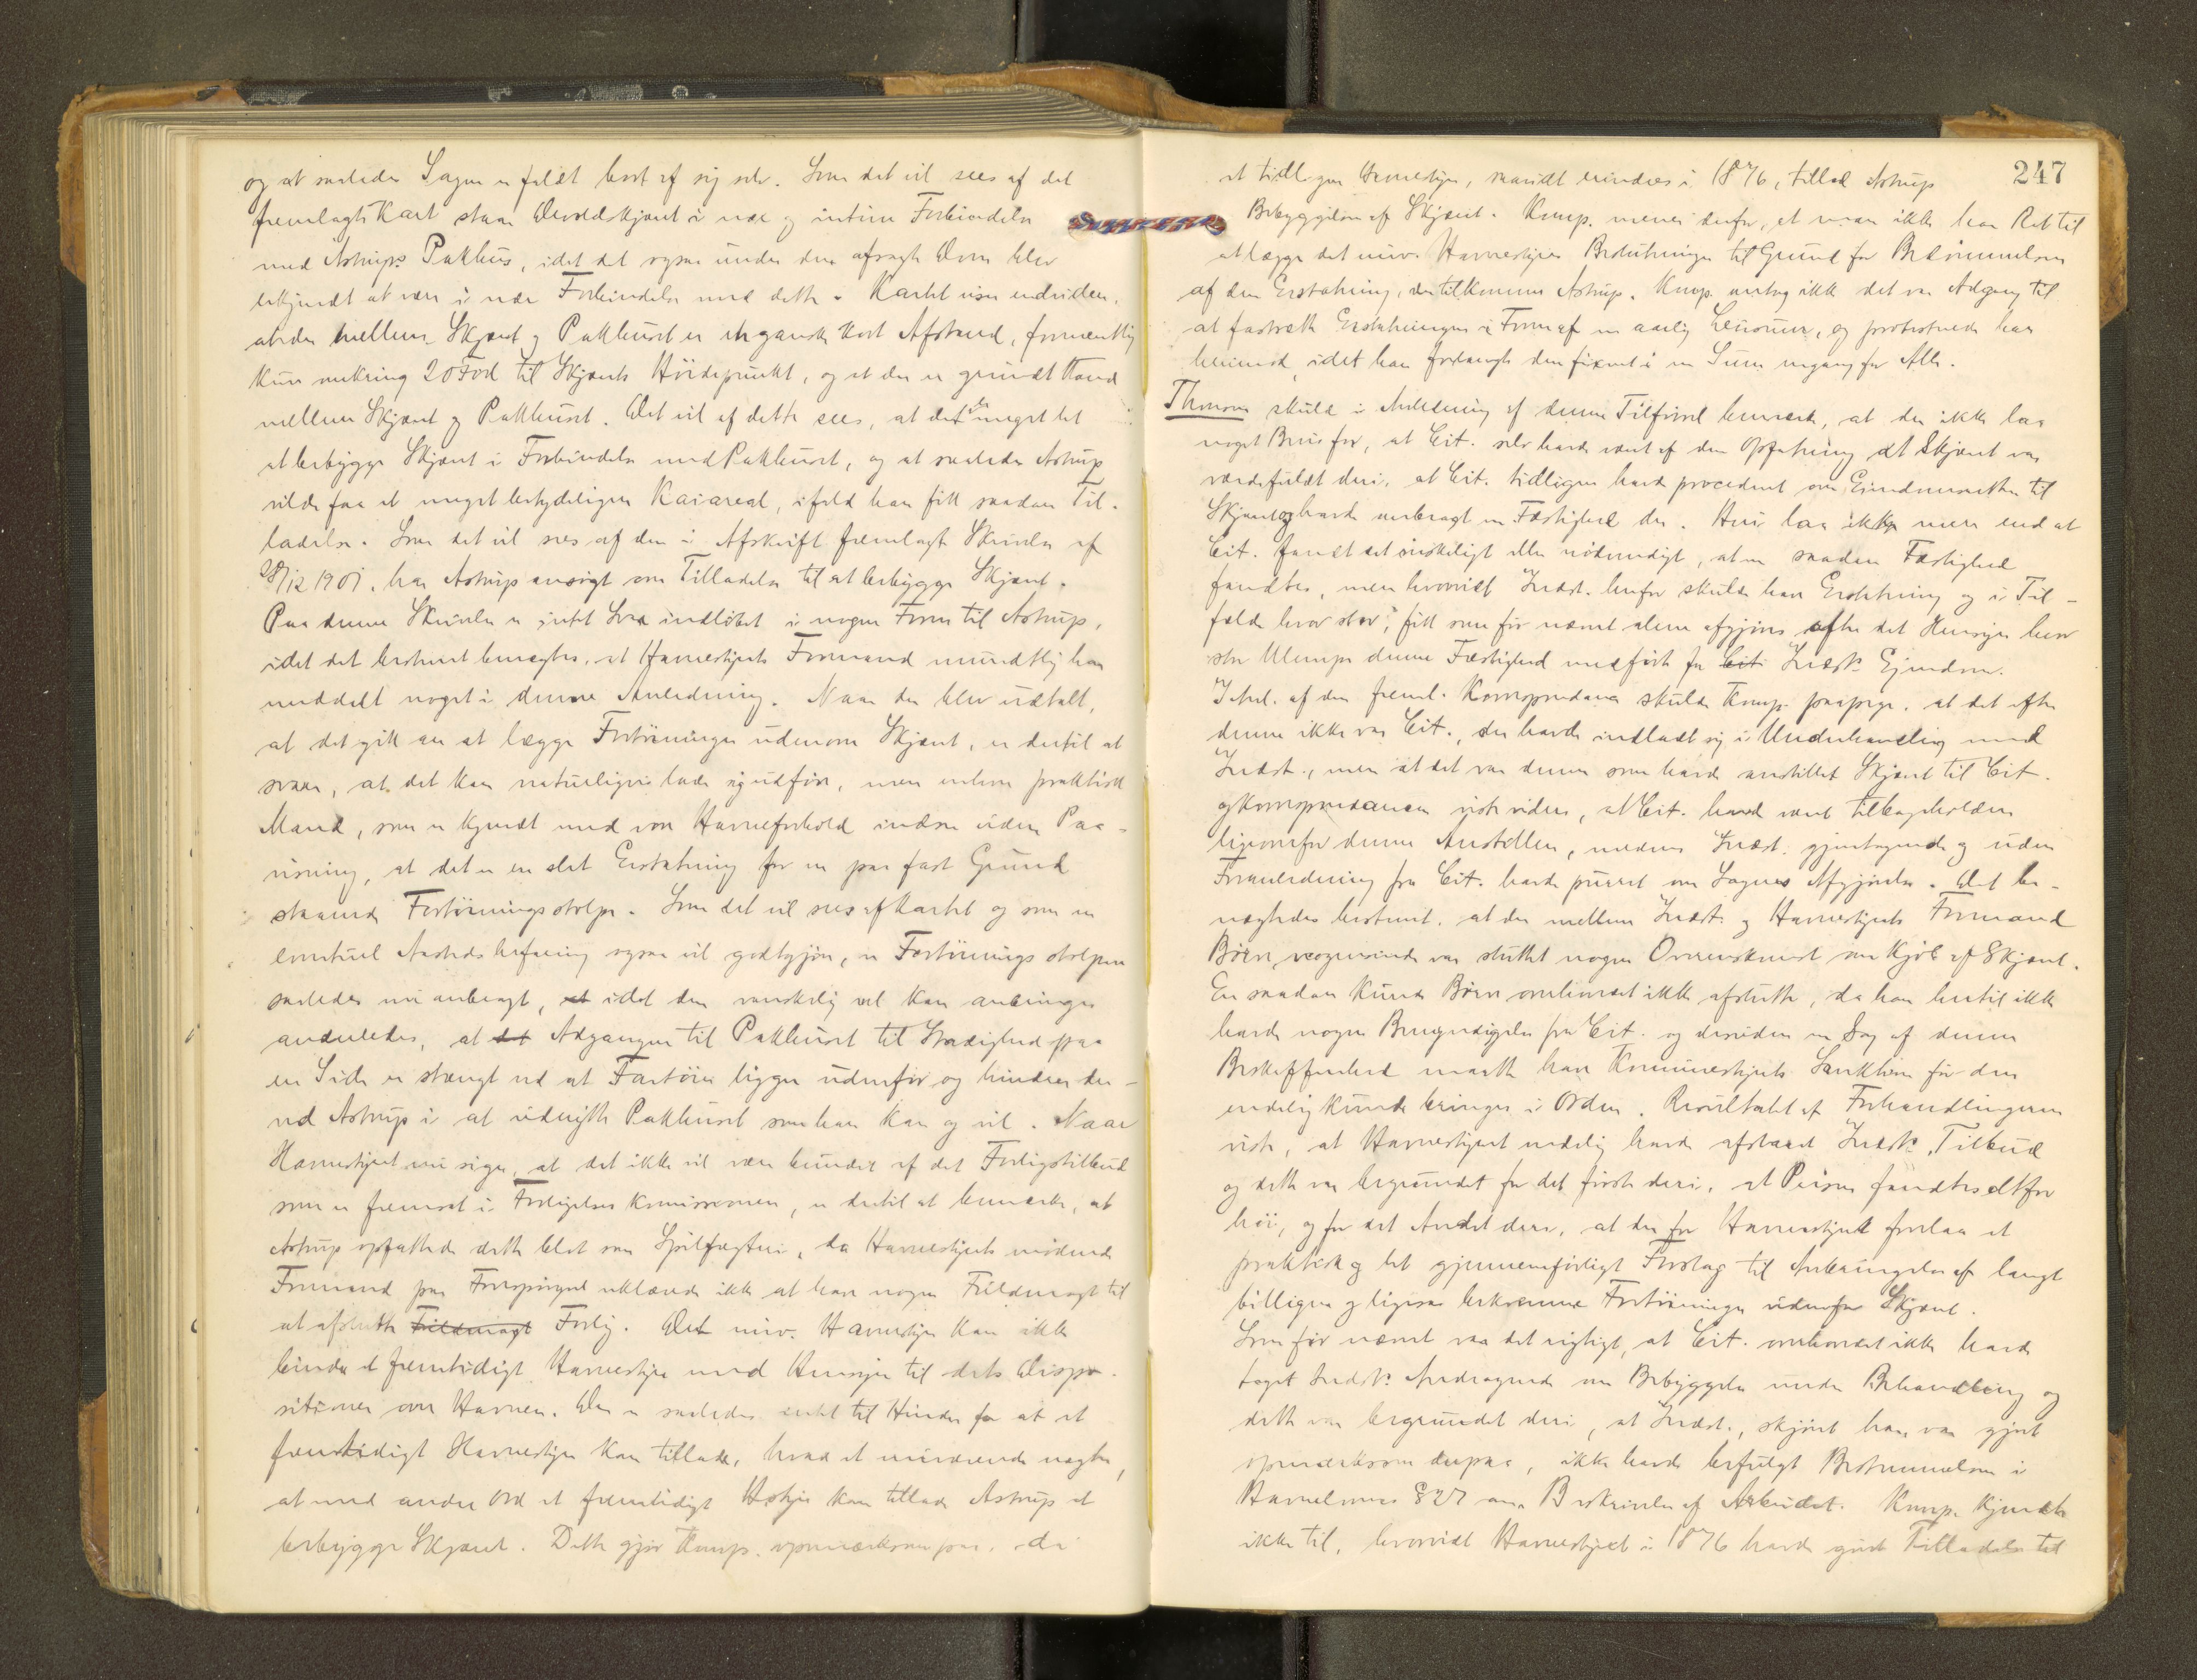 og at saaledes Sagen er faldt bort af sig selv. Som det vil sees af det
fremlagte Kart staar Devoldskjæret i nær og intim Forbindelse
med Astrups Pakhus, idet det ogsaa under den afsagte Dom blev
erkjendt at være i nær Forbindelse med dette. Kartet viser endvidere,
at der mellem Skjæret og Pakhuset er en ganske kort Afstand, formentlig
kun omkring 20 Fod til Skjærets Høidepunkt, og at der er grundt Vand
mellem Skjæret og Pakhuset. Det vil af dette sees, at det er meget let
at bebygge Skjæret i Forbindelse med Pakhuset, og at saaledes Astrup
vilde faa et meget betydeligere Kaiareal, ifald han fik saadan Til-
ladelse. Som det vil sees af den i Afskrift fremlagte Skrivelse af
28/12 1901, har Astrup ansøgt om Tilladelse til at bebygge Skjæret.
Paa denne Skrivelse er intet Svar indløbet i nogen Form til Astrup,
idet det bestemt benægtes, at Havnestyrets Formand mundtlig har
meddelt noget i denne Anledning. Naar der blev udtalt,
at det gik an at lægge Fortøininger udenom Skjæret, er dertil at
svare, at det kan naturligvis lade sig udføre, men enhver praktisk
Mand, som er kjendt med vore Havneforhold indser uden Paa-
visning, at det er en slet Erstatning for en paa fast Grund
staaende Fortøiningsstolpe. Som det vil sees af Kartet og som en
eventuel Aastedsbefaring ogsaa vil godtgjøre, er Fortøiningsstolpen
saaledes nu anbragt, at idet den vanskelig vel kan anbringes
anderledes, at det Adgangen til Pakhuset til Stadighed paa
en Side er stængt ved at Fartøier ligger udenfor og hindrer der-
ved Astrup i at udnytte Pakhuset som han kan og vil. Naar
Havnestyret nu siger, at det ikke vil være bundet af det Forligstilbud
som er fremsat i Forligelseskommissionen, er dertil at bemærke, at
Astrup opfattede dette blot som Spilfægteri, da Havnestyrets mødende
Formand paa Forespørgsel erklærede ikke at have nogen Fuldmagt til
at afslutte Fuldmagt Forlig. Det nuv. Havnestyre kan ikke
binde et fremtidigt Havnestyre med Hensyn til dets Dispo-
sitioner over Havnen. Der er saaledes intet til Hinder for at et
fremtidigt Havnestyre kan tillade, hvad et nuværende nægter,
at med andre Ord et fremtidigt Hstyre kan tillade Astrup at
bebygge Skjæret. Dette gjør Komp. opmærksom paa, da
247
et tidligere Havnestyre, saavidt erindres i 1876, tillod Astrup
Bebyggelse af Skjæret. Komp. mener derfor, at man ikke har Ret til
at lægge det nuv. Havnestyres Beslutninger til Grund for Bedømmelsen
af den Erstatning, der tilkommer Astrup. Komp. antog ikke det var Adgang til
at fastsætte Erstatningen i Form af en aarlig Leiesum, og protesterede han
herimod, idet han forlangte den fixeret i en Sum engang for Alle.
Thomson skulde i Anledning af denne Tilførsel bemærke, at der ikke laa
noget Bevis for, at Cit. selv havde været af den Opfatning at Skjæret var
værdifuldt deri, at Cit. tidligere havde procederet om Eiendomsretten til
Skjæret og havde anbragt en Fæstighed der. Heri laa ikke mere end at
Cit. fandt det ønskeligt eller nødvendigt, at en saadan Fæstighed
fandtes, men hvorvidt Indst. herfor skulde have Erstatning og i Til-
fælde hvor stor, fik som før nævnt alene afgjøres efter det Hensyn hvor
stor Ulempe denne Fæstighed medførte for Cit. Indst. Ejendom.
I Anl. af den freml. Korrespondance skulde Komp. paapege, at det efter
denne ikke var Cit., der havde indladt sig i Underhandling med
Indst., men at det var denne som havde anstillet Skjæret til Cit.
og Korrespondancen viste videre, at Cit. havde været tilbageholden
ligeoverfor denne Anstillen, medens Indst. gjentagende og uden
Foranledning fra Cit. havde purret om Sagens Afgjørelse. Det be-
nægtedes bestemt, at der mellem Indst. og Havnestyrets Formand
Børn, nogensinde var sluttet nogen Overenskomst om Kjøb af Skjæret.
En saadan kunde Børn omhandlet ikke afslutte, da han hertil ikke
havde nogen Bemyndigelse fra Cit. og desuden en Sag af denne
Beskaffenhed maatte have Kommunestyrets Sanktion før den
endelig kunde bringes i Orden. Resultatet af Forhandlingerne
viste, at Havnestyret endelig havde afslaaet Indst. Tilbud
og dette var begrundet for det første deri, at Prisen fandtes altfor
høi, og for det Andet deri, at der for Havnestyret forelaa et
praktisk og let gjennemførligt Forslag til Anbringelse af langt
billigere og ligesaa bekvemme Fortøininger udenfor Skjæret.
Som før nævnt var det rigtigt, at Cit. omhandlet ikke havde
taget Indst. Andragende om Bebyggelse under Behandling og
dette var begrundet deri, at Indst., skjønt han var gjort
opmærksom derpaa, ikke havde befulgt Bestemmelsen i
Havnelovens § 27 om Beskrivelse af Arbeidet. Komp. kjendte
ikke til, hvorvidt Havnestyret i 1876 havde givet Tilladelse til